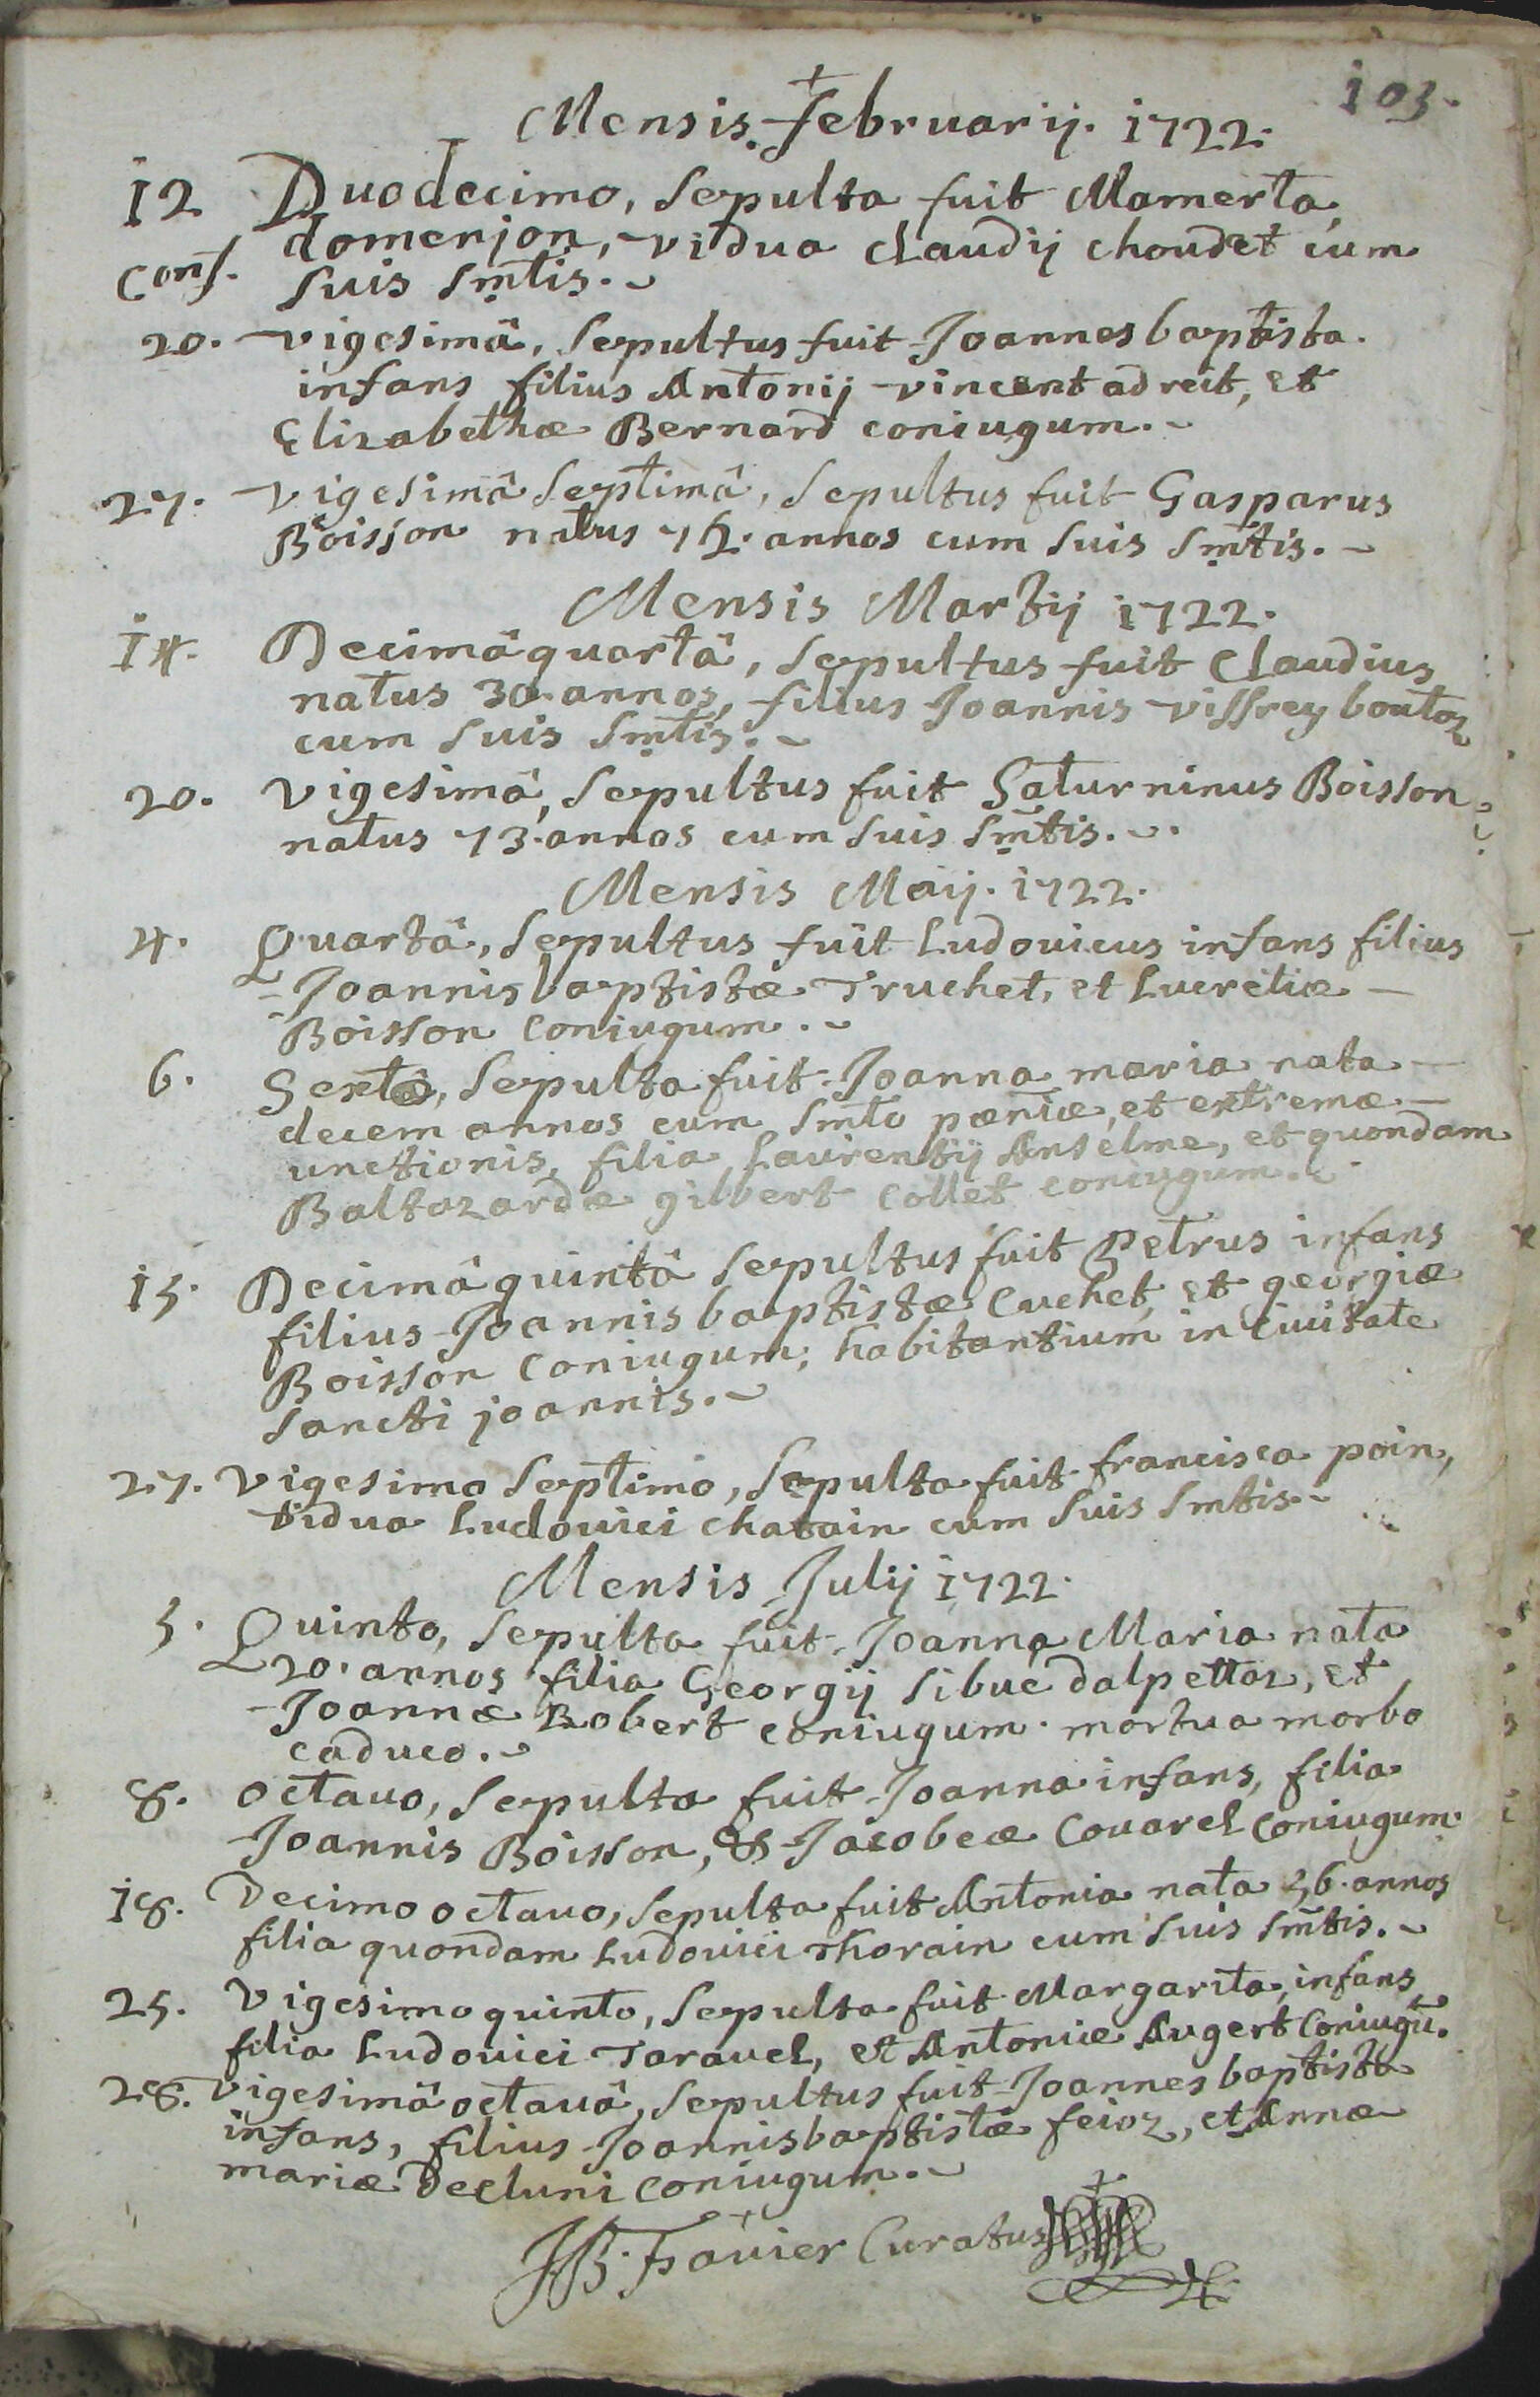 103.
Mensis februarij. 1722.
12 Duodecimo, sepulta fuit Mamerta
conf. domenjon, vidua claudij choudet cum
suis smtis.
20. vigesimâ, sepultus fuit Joannes baptista.
infans filius Antonij vincent adreit, et
Elisabethæ Bernard coniugum.
27. vigesimâ septimâ, sepultus fuit Gasparus
Boisson natus 72. annos cum suis smtis.
Mensis Martij 1722.
14. Decimâ quartâ, sepultus fuit Claudius
natus 30. annos, filius Joannis viffrey boutoz
cum suis smtis.
20. vigesimâ, sepultus fuit Saturninus Boisson
natus 73. annos cum suis smtis.
Mensis Maij. 1722.
4. Quartâ, sepultus fuit Ludouicus infans filius
Joannis baptistæ Truchet, et Lucretiæ
Boisson coniugum.
6. Sextâ, sepulta fuit Joanna maria nata
decem annos cum smto pæniæ, et extremæ
unctionis, filia Laurentij Anselme, et quondam
Baltazardæ gilbert collet coniugum.
15. Decimâ quintâ sepultus fuit Petrus infans
filius Joannis baptistæ Cuchet, et georgiæ
Boisson coniugum, habitantium in ciuitate
sancti joannis.
27. vigesimo septimo, sepulta fuit francisca pain,
vidua Ludouici chatain cum suis smtis.
Mensis Julij 1722.
5. Quinto, sepulta fuit Joanna Maria nata
20. annos filia Georgij sibue dalpettaz, et
Joannæ Robert coniugum. mortua morbo
caduco.
8. octauo, sepulta fuit Joanna infans, filia
Joannis Boisson, & Jacobeæ Couarel coniugum.
18. Decimo octauo, sepulta fuit Antonia nata 36. annos
filia quondam Ludouici thorain cum suis smtis.
25. Vigesimo quinto, sepulta fuit Margarita, infans
filia Ludouici Tarauel, et Antoniæ Augert Coniugū.
28. vigesimâ octauâ, sepultus fuit Joannes baptista
infans, filius Joannis baptistæ feioz, et Annæ
mariæ Decluni coniugum.
JB. Favier Curatus